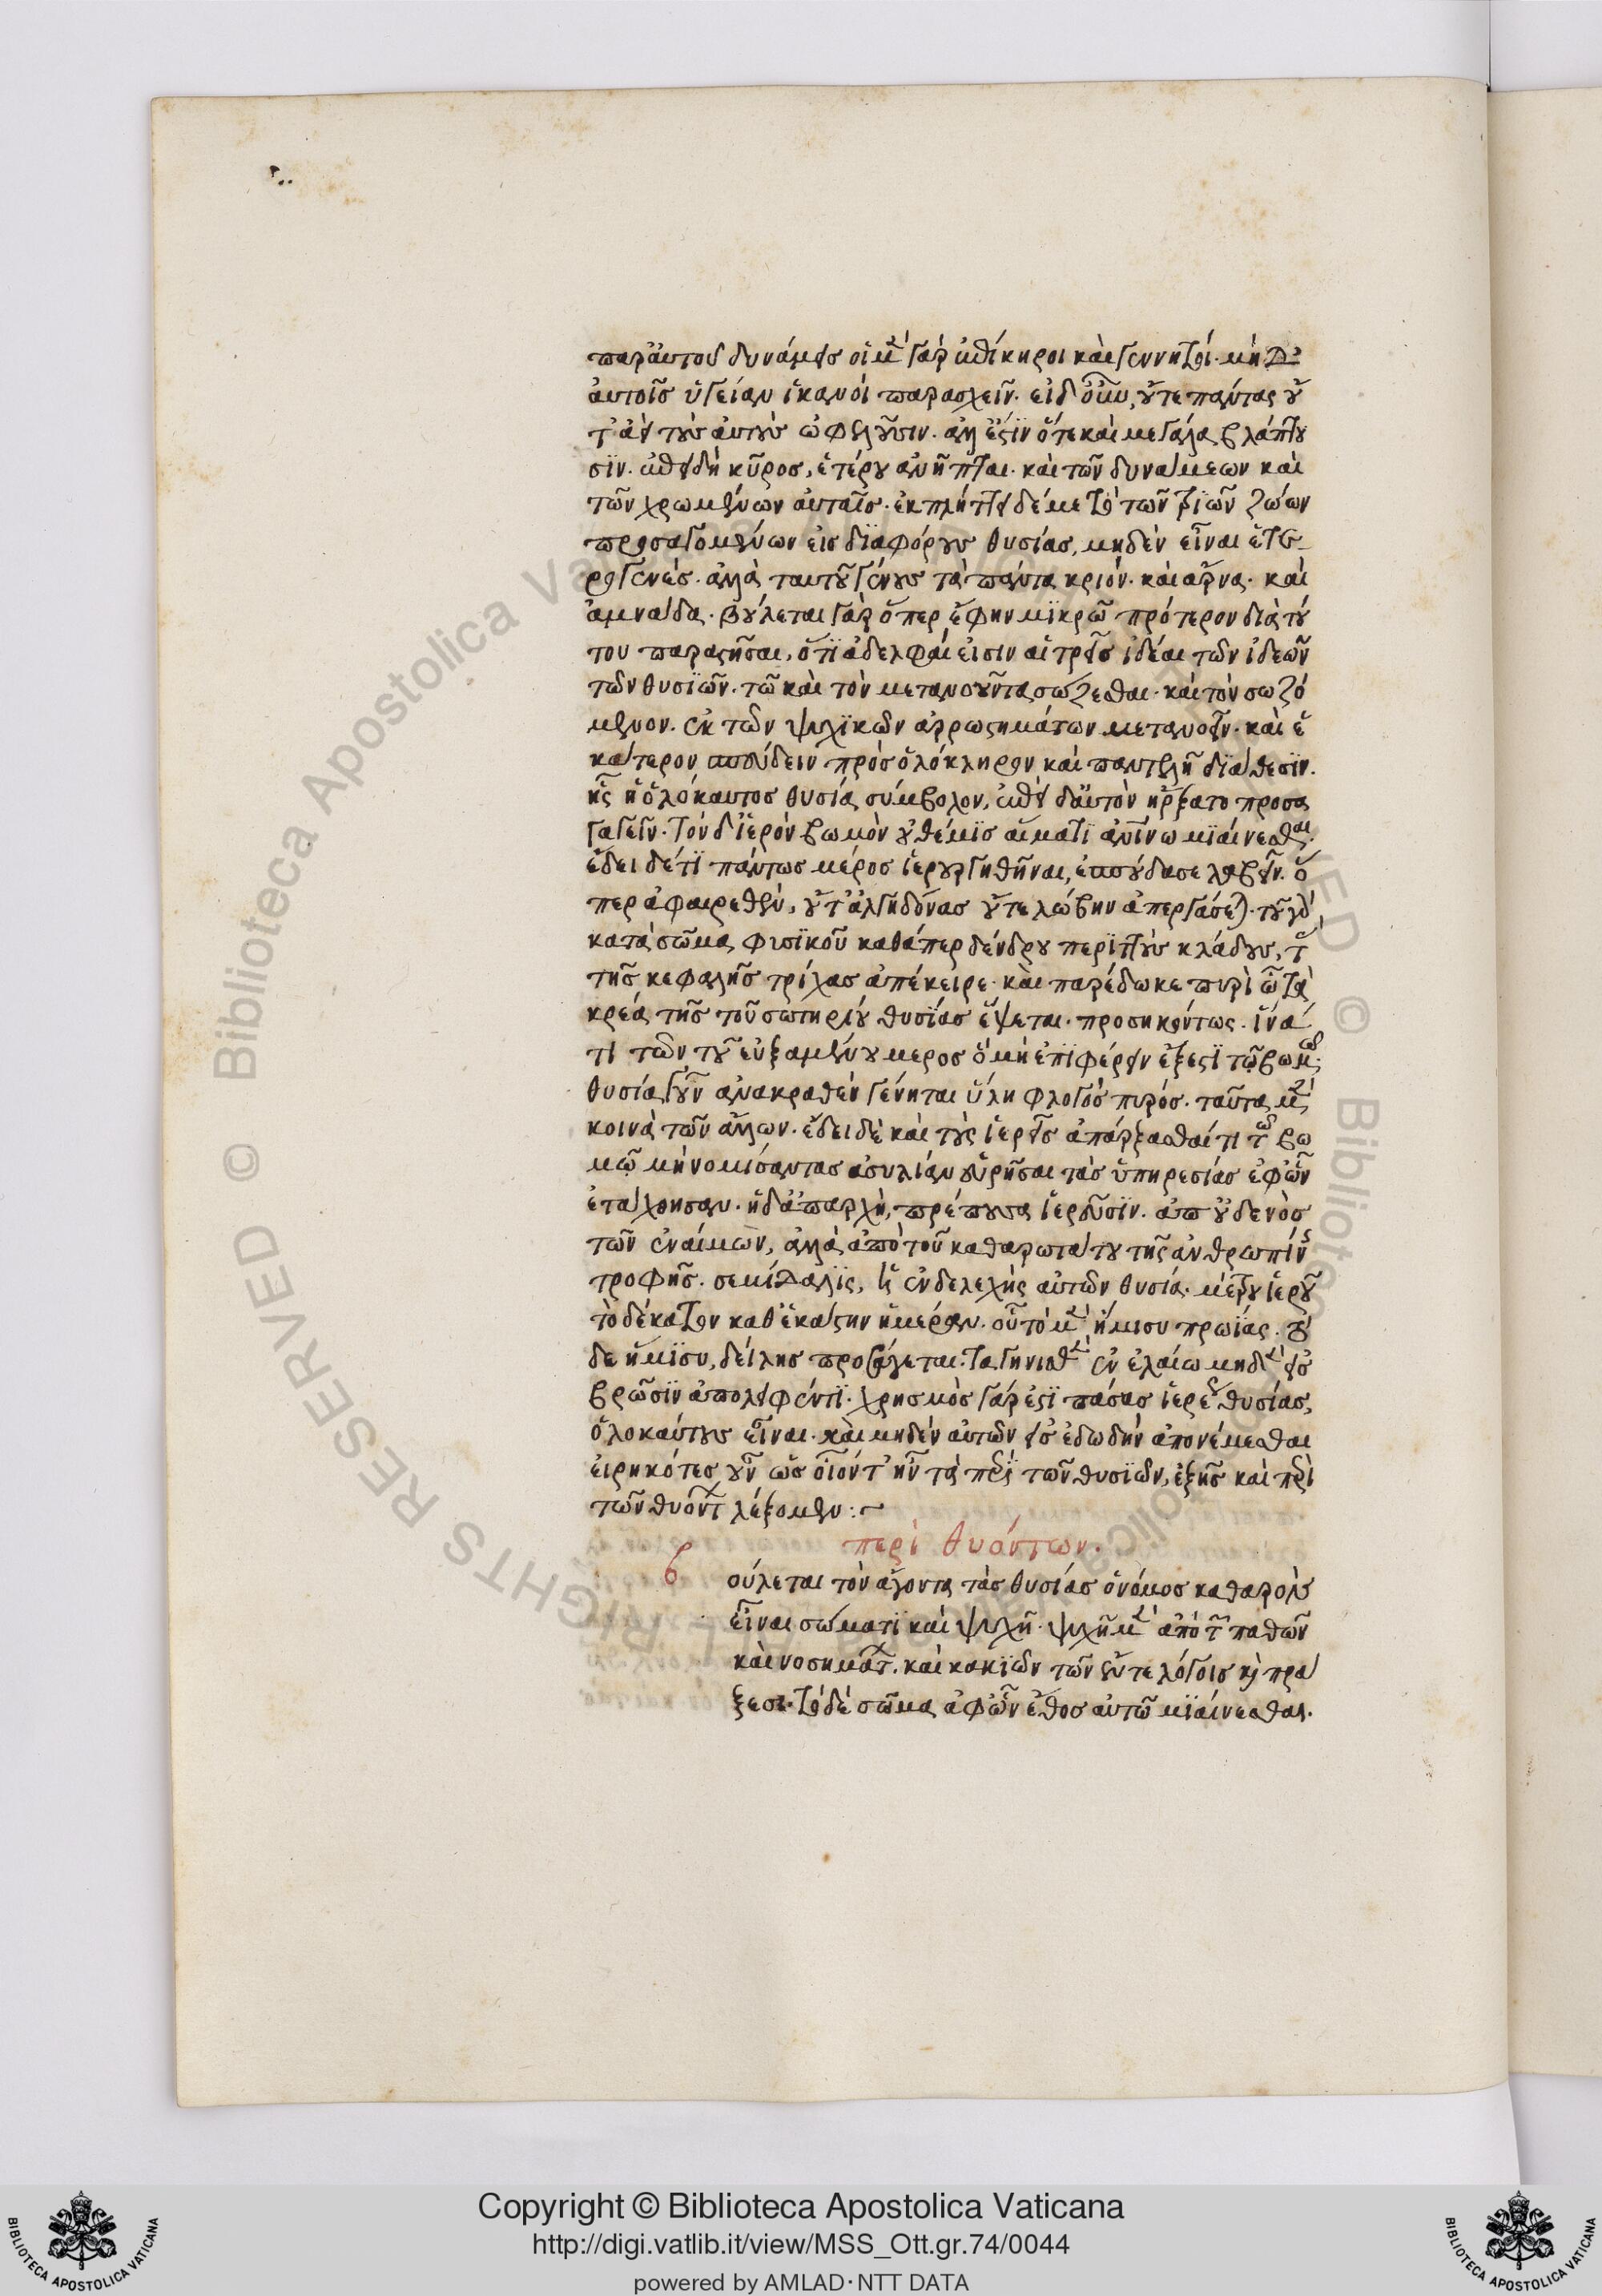 παρ' αυτοῦ δυνάμεις οἱ μὲν γὰρ ἐπίκηροι καὶ γεννητοί. μηδὲ
αὐτοῖς ὑγείαν ἱκανοὶ παρασχεῖν. εἰ δ' οὖν, οὔτε πάντας οὔ
τ' ἀεὶ τοὺς αὐτοὺς ὠφελοῦσιν. ἀλλ' ἔστιν ὅτε καὶ μεγάλα βλάπτου
σιν. ἐπειδὴ κῦρος, ἑτέρου ἀνῆπται. καὶ τῶν δυνάμεων καὶ
τῶν χρωμένων αὐταῖς. ἐκπλήττει δέ με τὸ τῶν τριῶν ζώων
προσαγομένων εἰς διαφόρους θυσίας, μηδὲν εἶναι ἑτε
ρογενές. ἀλλὰ ταυτοῦ γένους τὰ πάντα κριόν. καὶ ἄρνα. καὶ
ἀμνάδα. βούλεται γὰρ ὅπερ ἔφην μικρῶ πρότερον διὰ τού
του παραστῆσαι, ὅτι ἀδελφαί εἰσιν αἱ τρεῖς ἰδέαι τῶν ἰδεῶν
τῶν θυσιῶν. τῶ καὶ τὸν μετανοοῦντα σώζεσθαι. καὶ τὸν σωζό
μενον. ἐκ τῶν ψυχικῶν ἀρρωστημάτων μετανοεῖν. καὶ ἑ
κάτερον σπεύδειν πρὸς ὁλόκληρον καὶ παντελῆ διάθεσιν.
ἧς ἡ ὁλόκαυτος θυσία σύμβολον, ἐπεὶ δ' αὑτὸν ἤρξατο προσα
γαγεῖν. τὸν δ' ἱερὸν βωμὸν οὐ θέμις αἵματι ἀνθρωπίνω μιαίνεσθαι.
ἔδει δέ τι πάντως μέρος ἱερουργηθῆναι, ἐσπούδασε λαβεῖν. ὅ
περ ἀφαιρεθὲν, οὔτ' ἀλγηδόνας οὔτε λώβην ἀπεργάσεται. τοῦ γὰρ
κατὰ σῶμα φυσικοῦ καθάπερ δένδρου περιττοὺς κλάδους, τὰς
τῆς κεφαλῆς τρίχας ἀπέκειρε. καὶ παρέδωκε πυρὶ ὧ τὰ
κρέα τῆς τοῦ σωτηρίου θυσίας ἕψεται. προσηκόντως. ἵνά
τι τῶν τοῦ εὐξαμένου μερος ὃ μὴ ἐπιφέρειν ἔξεστι τῶ βωμῶ.
θυσία γοῦν ἀνακραθὲν γένηται ὕλη φλογὸς πυρός. ταῦτα μὲν
κοινὰ τῶν ἄλλων. ἔδει δὲ καὶ τοὺς ἱερεῖς ἀπάρξασθαί τι τῶ βω
μῶ μὴ νομίσαντας ἀσυλίαν εὑρῆσαι τὰς ὑπηρεσίας ἐφ' ὧν
ἐτάχθησαν. ἡ δ' ἀπαρχὴ, πρέπουσα ἱερεῦσιν. ἀπ' οὐδενὸς
τῶν ἐναίμων, ἀλλὰ ἀπὸ τοῦ καθαρωτάτου τῆς ἀνθρωπίνης
τροφῆς. σεμίδαλις, ἡ ἐνδελεχὴς αὐτῶν θυσία. μέτρου ἱεροῦ
τὸ δέκατον καθ' ἑκάστην ἡμέραν. οὗ τὸ μὲν ἥμισυ πρωΐας. τὸ
δε ἥμισυ, δείλης προσάγεται. ταγηνισθὲν ἐν ἐλαίω μηδὲν εἰς
βρῶσιν ἀπολειφθέντι. χρησμὸς γάρ ἐστι πάσας ἱερέως θυσίας,
ὁλοκαύτους εἶναι. καὶ μηδὲν αὐτῶν εἰς ἐδωδὴν ἀπονέμεσθαι
εἰρηκότες οὖν ὡς οἷόν τ' ἦν τὰ περὶ τῶν θυσιῶν, ἑξῆς καὶ περὶ
τῶν θυόντων λέξομεν:~
περὶ θυόντων.
βούλεται τὸν ἄγοντα τὰς θυσίας ὁ νόμος καθαρὸν
εἶναι σώματι καὶ ψυχῆ. ψυχῆ μὲν ἀπὸ τῶν παθῶν
καὶ νοσημάτων. καὶ κακιῶν τῶν ἔν τε λόγοις καὶ πρά
ξεσι. τὸ δὲ σῶμα ἀφ' ὧν ἔθος αὐτῶ μιαίνεσθαι.
Copyright © Biblioteca Apostolica Vaticana
http://digi.vatlib.it/view/MSS_Ott.gr.74/0044
powered by AMLAD · NTT DATA